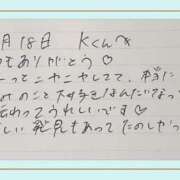 月18日 Kくんへ
もありがとう♡
ーっとニヤニヤしてて、本当に
のこと大好きなんだなって
伝わってうれしいです♡
しい発見もあってたのしかっ